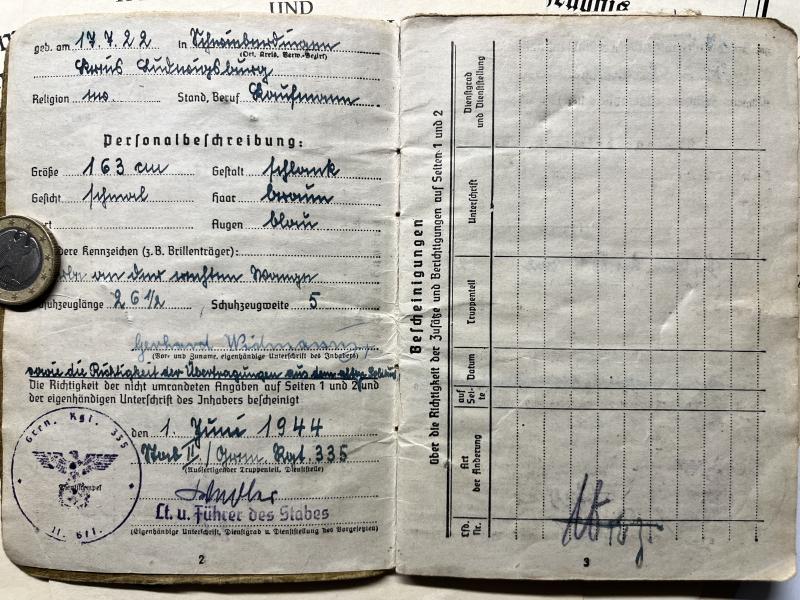 UND
geb. am 17.7.22 in Schwieberdingen
(Ort, Kreis, Verw.-Bezirk)
Kreis Ludwigsburg
Religion Stand, Beruf Kaufmann
Personalbeschreibung:
Größe 163 cm Gestalt schlank
Gesicht schmal Haar braun
Augen blau
Kennzeichen (z.B. Brillenträger):
an der rechten Wange
Schuhzeuglänge 26 1/2 Schuhzeugweite 5
Gerhard Widmann
(Vor- und Zuname, eigenhändige Unterschrift des Inhabers)
sowie die Richtigkeit der Übertragungen aus dem
Die Richtigkeit der nicht umrandeten Angaben auf Seiten 1 und 2 und
der eigenhändigen Unterschrift des Inhabers bescheinigt
den 1. Juni 1944
Stab II/Gren. Rgt. 335
(Ausfertigender Truppenteil, Dienststelle)
Lt. u. Führer des Stabes
(Eigenhändige Unterschrift, Dienstgrad u. Dienststellung des Vorgesetzten)
Gren. Rgt. 335
Dienststempel
II. Btl.
2
Bescheinigungen
über die Richtigkeit der Zusätze und Berichtigungen auf Seiten 1 und 2
Lfd. Nr.
Art der Änderung
auf Sei-te
Datum
Truppenteil
Unterschrift
Dienstgrad und Dienststellung
3